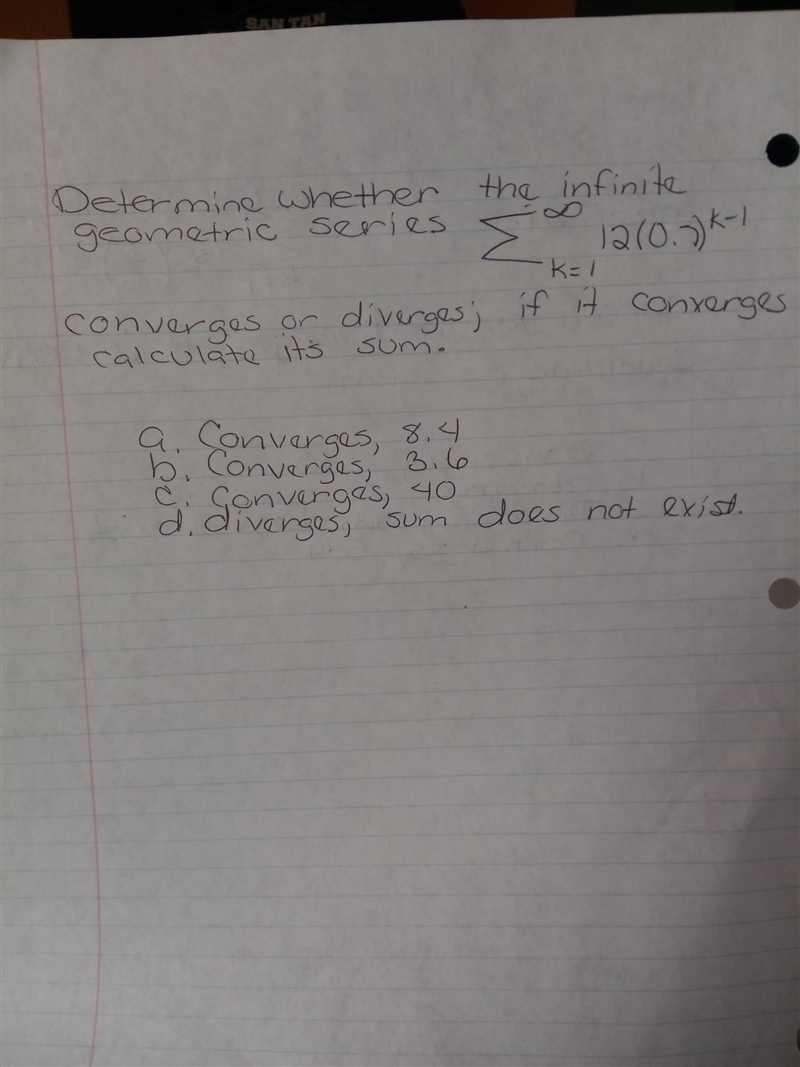 SAN TAN
Determine whether the infinite
geometric series ∑ k=1 ∞ 12(0.7)^k-1
converges or diverges; if it converges
calculate its sum.
a. Converges, 8.4
b. Converges, 3.6
c. Converges, 40
d. diverges, sum does not exist.